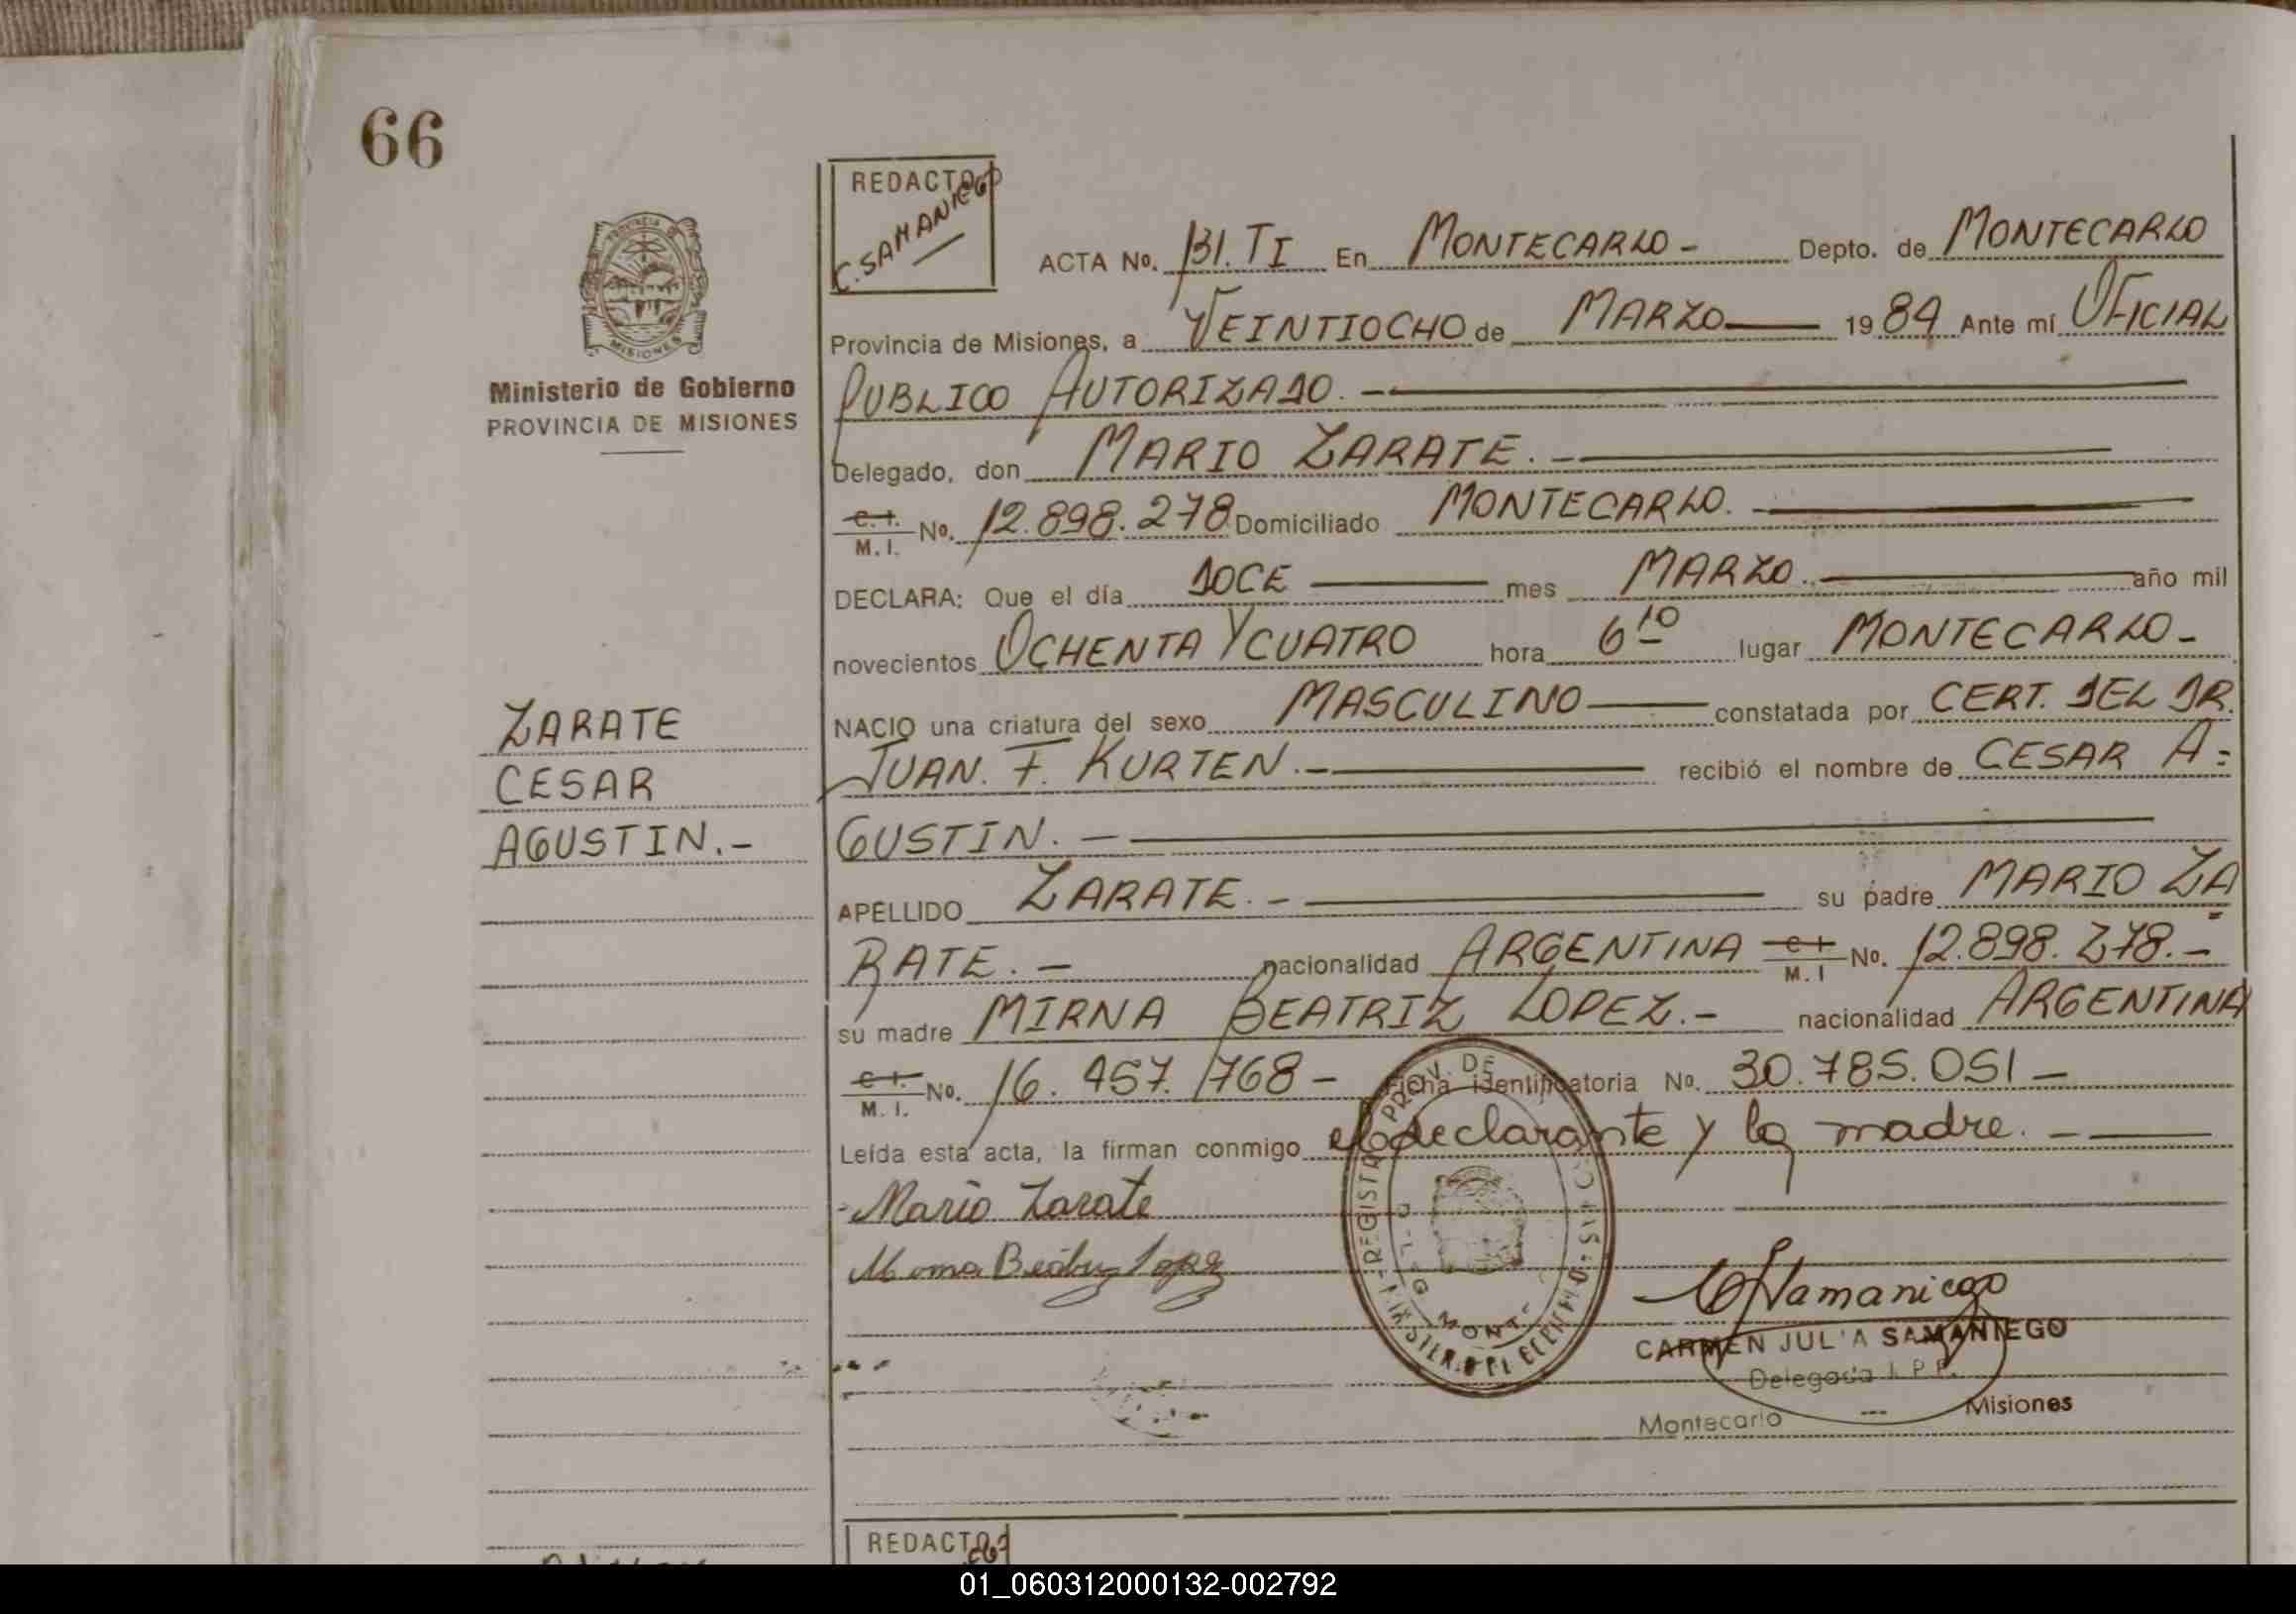 66
PROVINCIA DE
MISIONES
Ministerio de Gobierno
PROVINCIA DE MISIONES
ZARATE
CESAR
AGUSTIN.-
REDACTO
C. SAMANIEGO
ACTA No. 131. TI En MONTECARLO - Depto. de MONTECARLO
Provincia de Misiones, a VEINTIOCHO de MARZO 1984 Ante mí OFICIAL
PUBLICO AUTORIZADO. -
Delegado, don MARIO ZARATE. -
C. I. M. I. No. 12.898.278 Domiciliado MONTECARLO.
DECLARA: Que el día DOCE mes MARZO. año mil
novecientos OCHENTA Y CUATRO hora 6 10 lugar MONTECARLO -
NACIO una criatura del sexo MASCULINO constatada por CERT. DEL DR.
JUAN. F. KURTEN. - recibió el nombre de CESAR A=
GUSTIN. -
APELLIDO ZARATE. - su padre MARIO ZA=
RATE. - nacionalidad ARGENTINA C. I. M. I No. 12.898.278. -
su madre MIRNA BEATRIZ LOPEZ. - nacionalidad ARGENTINA
C. I. M. I. No. 16.457.768 - Ficha identificatoria No. 30.785.051 -
Leída esta acta, la firman conmigo el declarante y la madre. -
Mario Zarate
Beatriz Lopez
REGISTRO PROV. DE
MONT
Samaniego
CARMEN JULIA SAMANIEGO
Delegada
Montecarlo --- Misiones
REDACTO
01_060312000132-002792